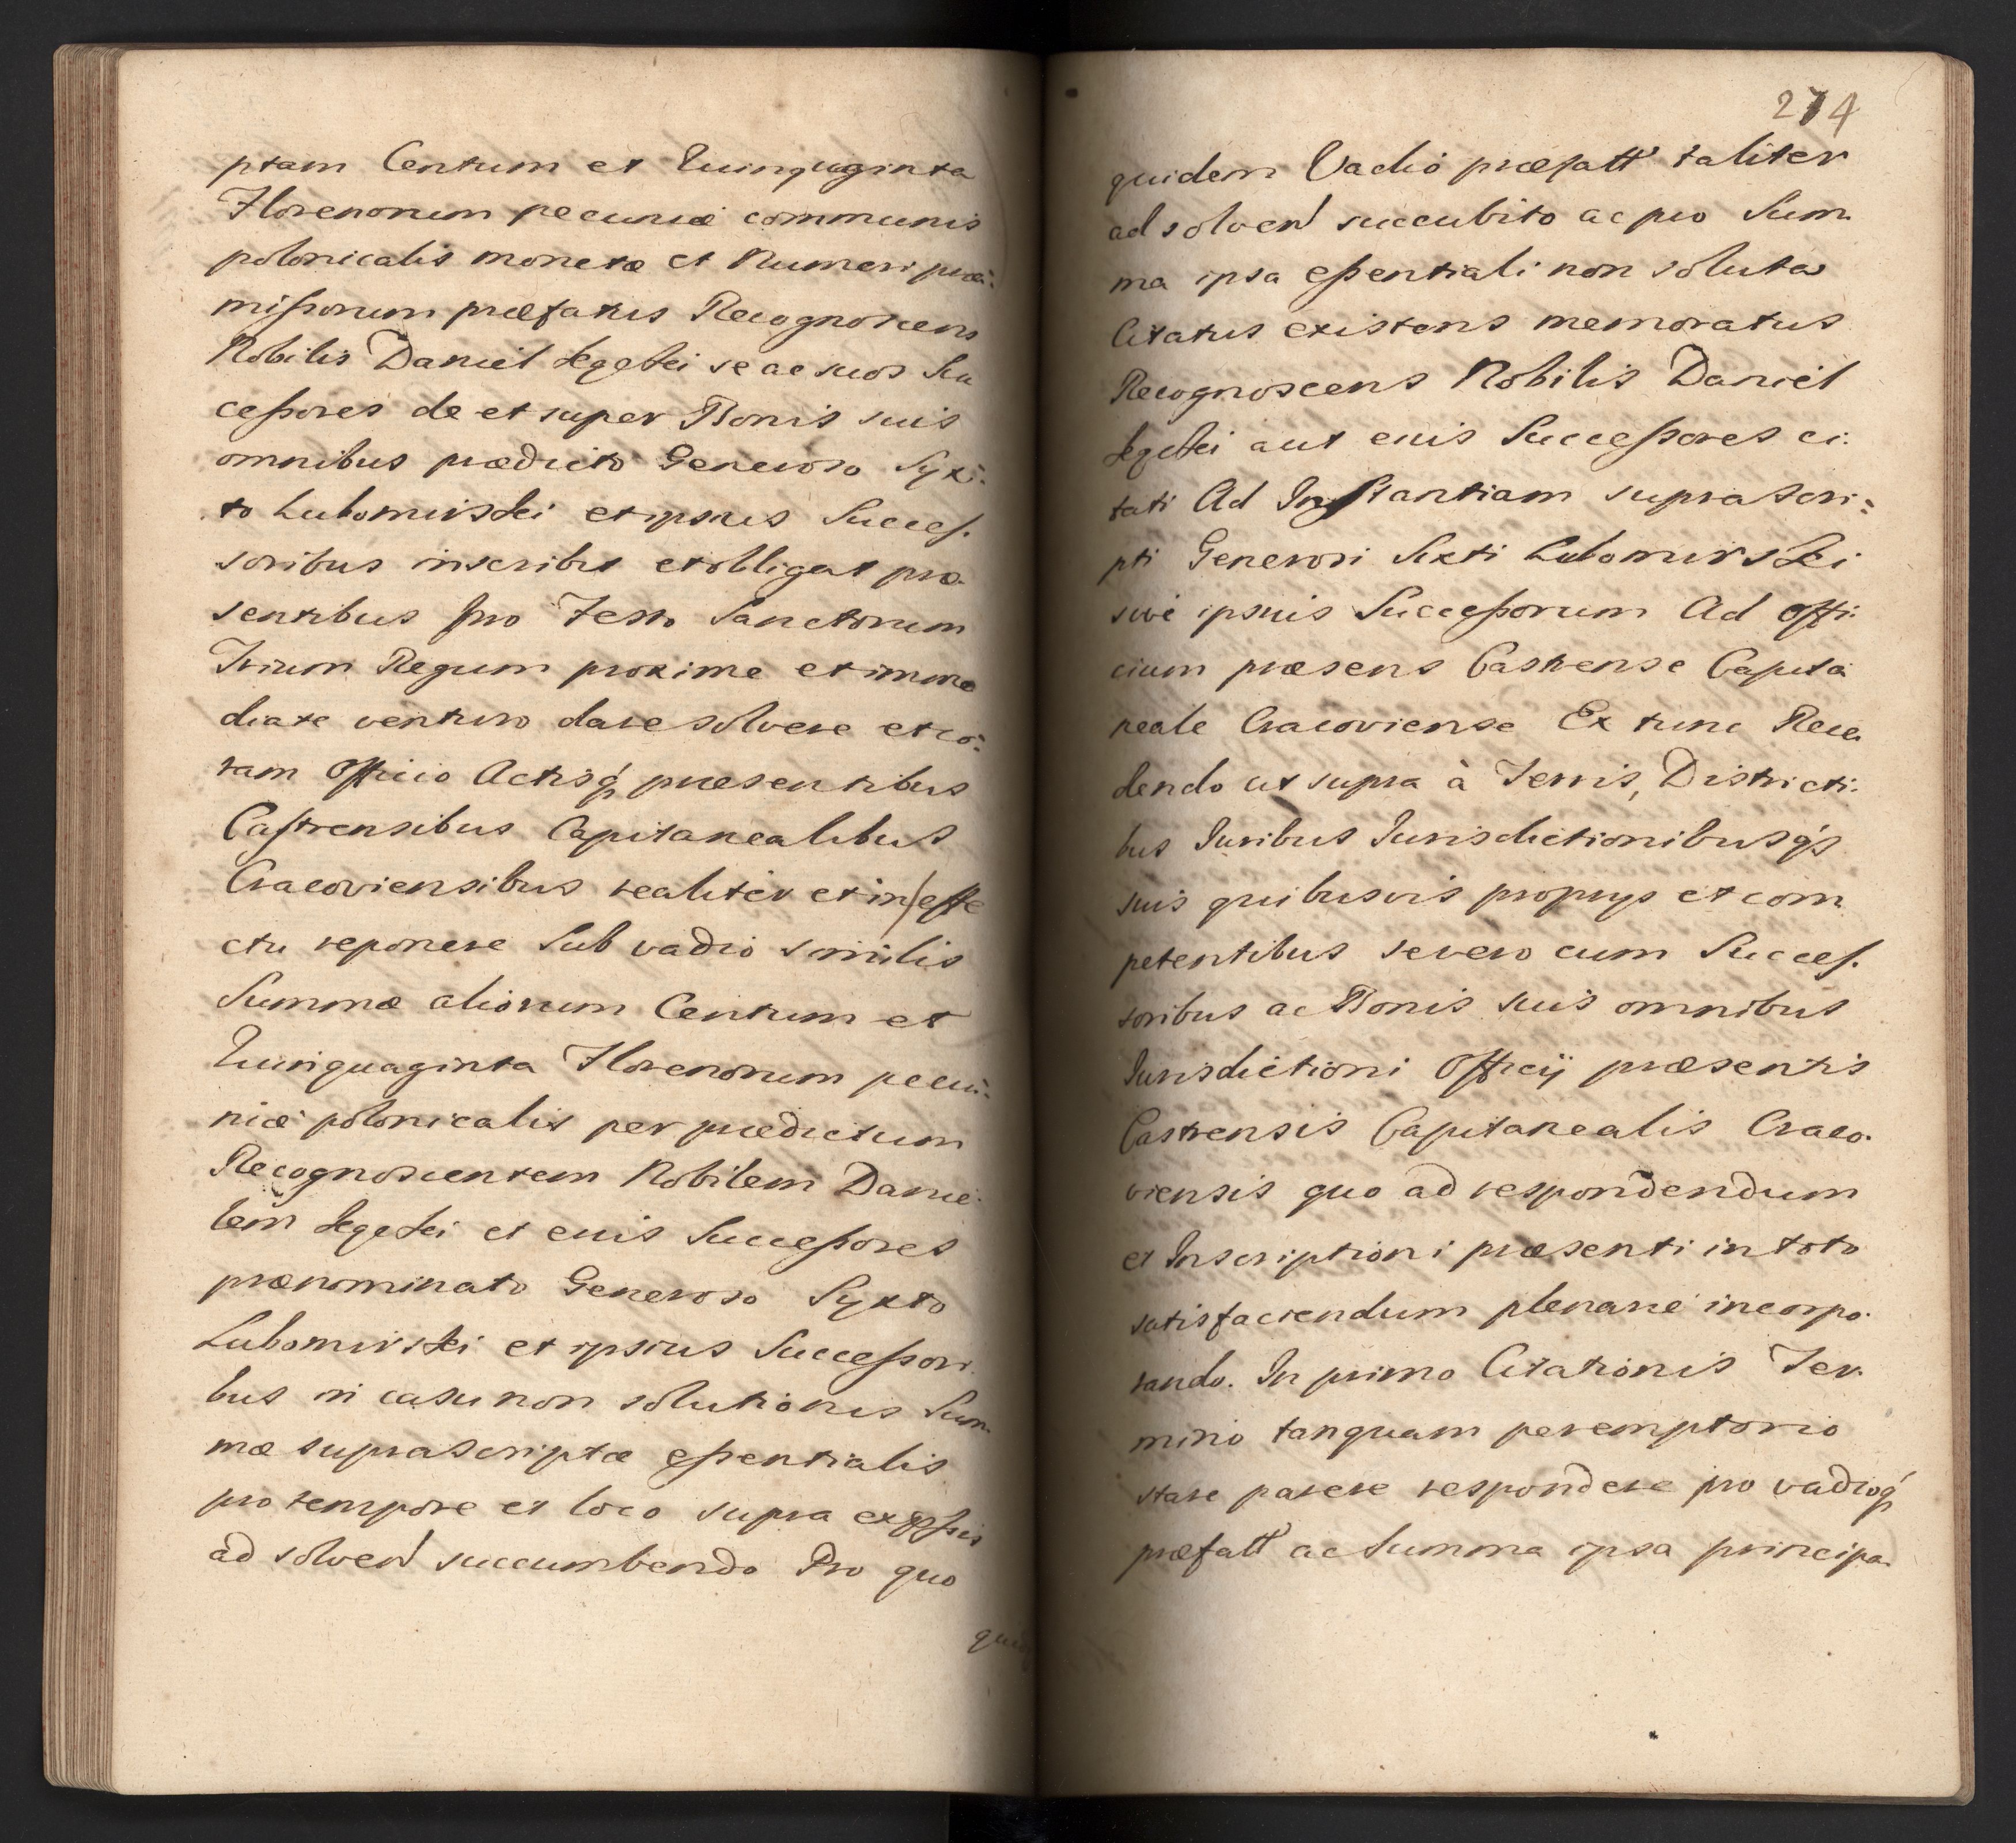 ptam Centum et Quinquaginta
Florenorum pecuniæ communis
polonicalis monetæ et Numeri præ:
missorum præfatus Recognoscens
Nobilis Daniel Segetski se ac suos Suc
cessores de et super Bonis suis
omnibus prædicto Generoso Syx:
to Lubomirski et ipsius Succes.
soribus inscribit et obligat præ
sentibus pro Festo Sanctorum
Trium Regum proxime et imme
diate venturo dare solvere et co:
ram Officio Actisq́ præsentibus
Castrensibus Capitanealibus
Cracoviensibus realiter et in effe
ctu reponere Sub vadio similis
Summæ aliorum Centum et
Quinquaginta Florenorum pecu:
niæ polonicalis per prædictum
Recognoscentem Nobilem Danie
lem et eius Successores
prænominato Generoso Syxto
Lubomirski et ipsius Successori
bus in casu non solutionis Sum
mæ suprascriptæ essentialis
pro tempore et loco supra expssis
ad solven succumbendo Pro quo
274
quidem Vadio præfatt taliter
ad solven succubito ac pro Sum
ma ipsa essentiali non soluta
Citatus existens memoratus
Recognoscens Nobilis Daniel
aut eius Successores ci:
tati Ad Instantiam suprascri:
pti Generosi Sixti Lubomirski
sive ipsius Successorum Ad Offi:
cium præsens Castrense Capita
neale Cracoviense Ex tunc Rece
dendo ut supra à Terris, Districti:
bus Juribus Jurisdictionibusq́
suis quibusvis propriis et com
petentibus se vero cum Succes.
soribus ac Bonis suis omnibus
Jurisdictioni Officij præsentis
Castrensis Capitanealis Craco.
viensis quo ad respondendum
et Inscriptioni præsenti in toto
satisfaciendum plenarie incorpo.
rando. In primo Citationis Ter.
mino tanquam peremptorio
stare parere respondere pro vadioq́
præfatt ac Summa ipsa principa.